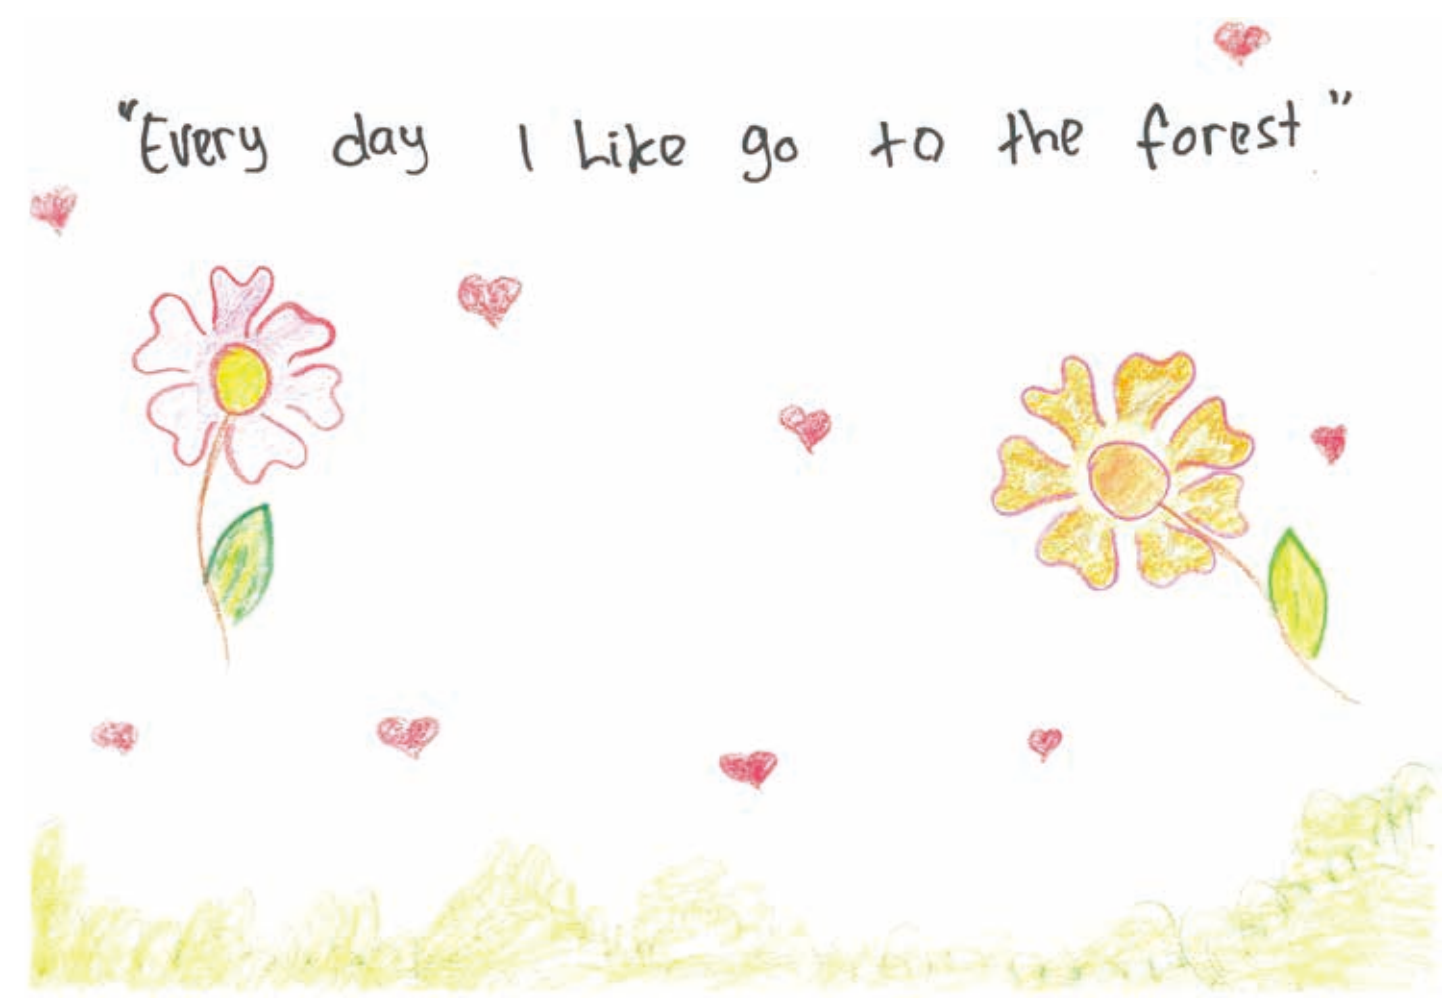 "Every day I Like go to the forest"